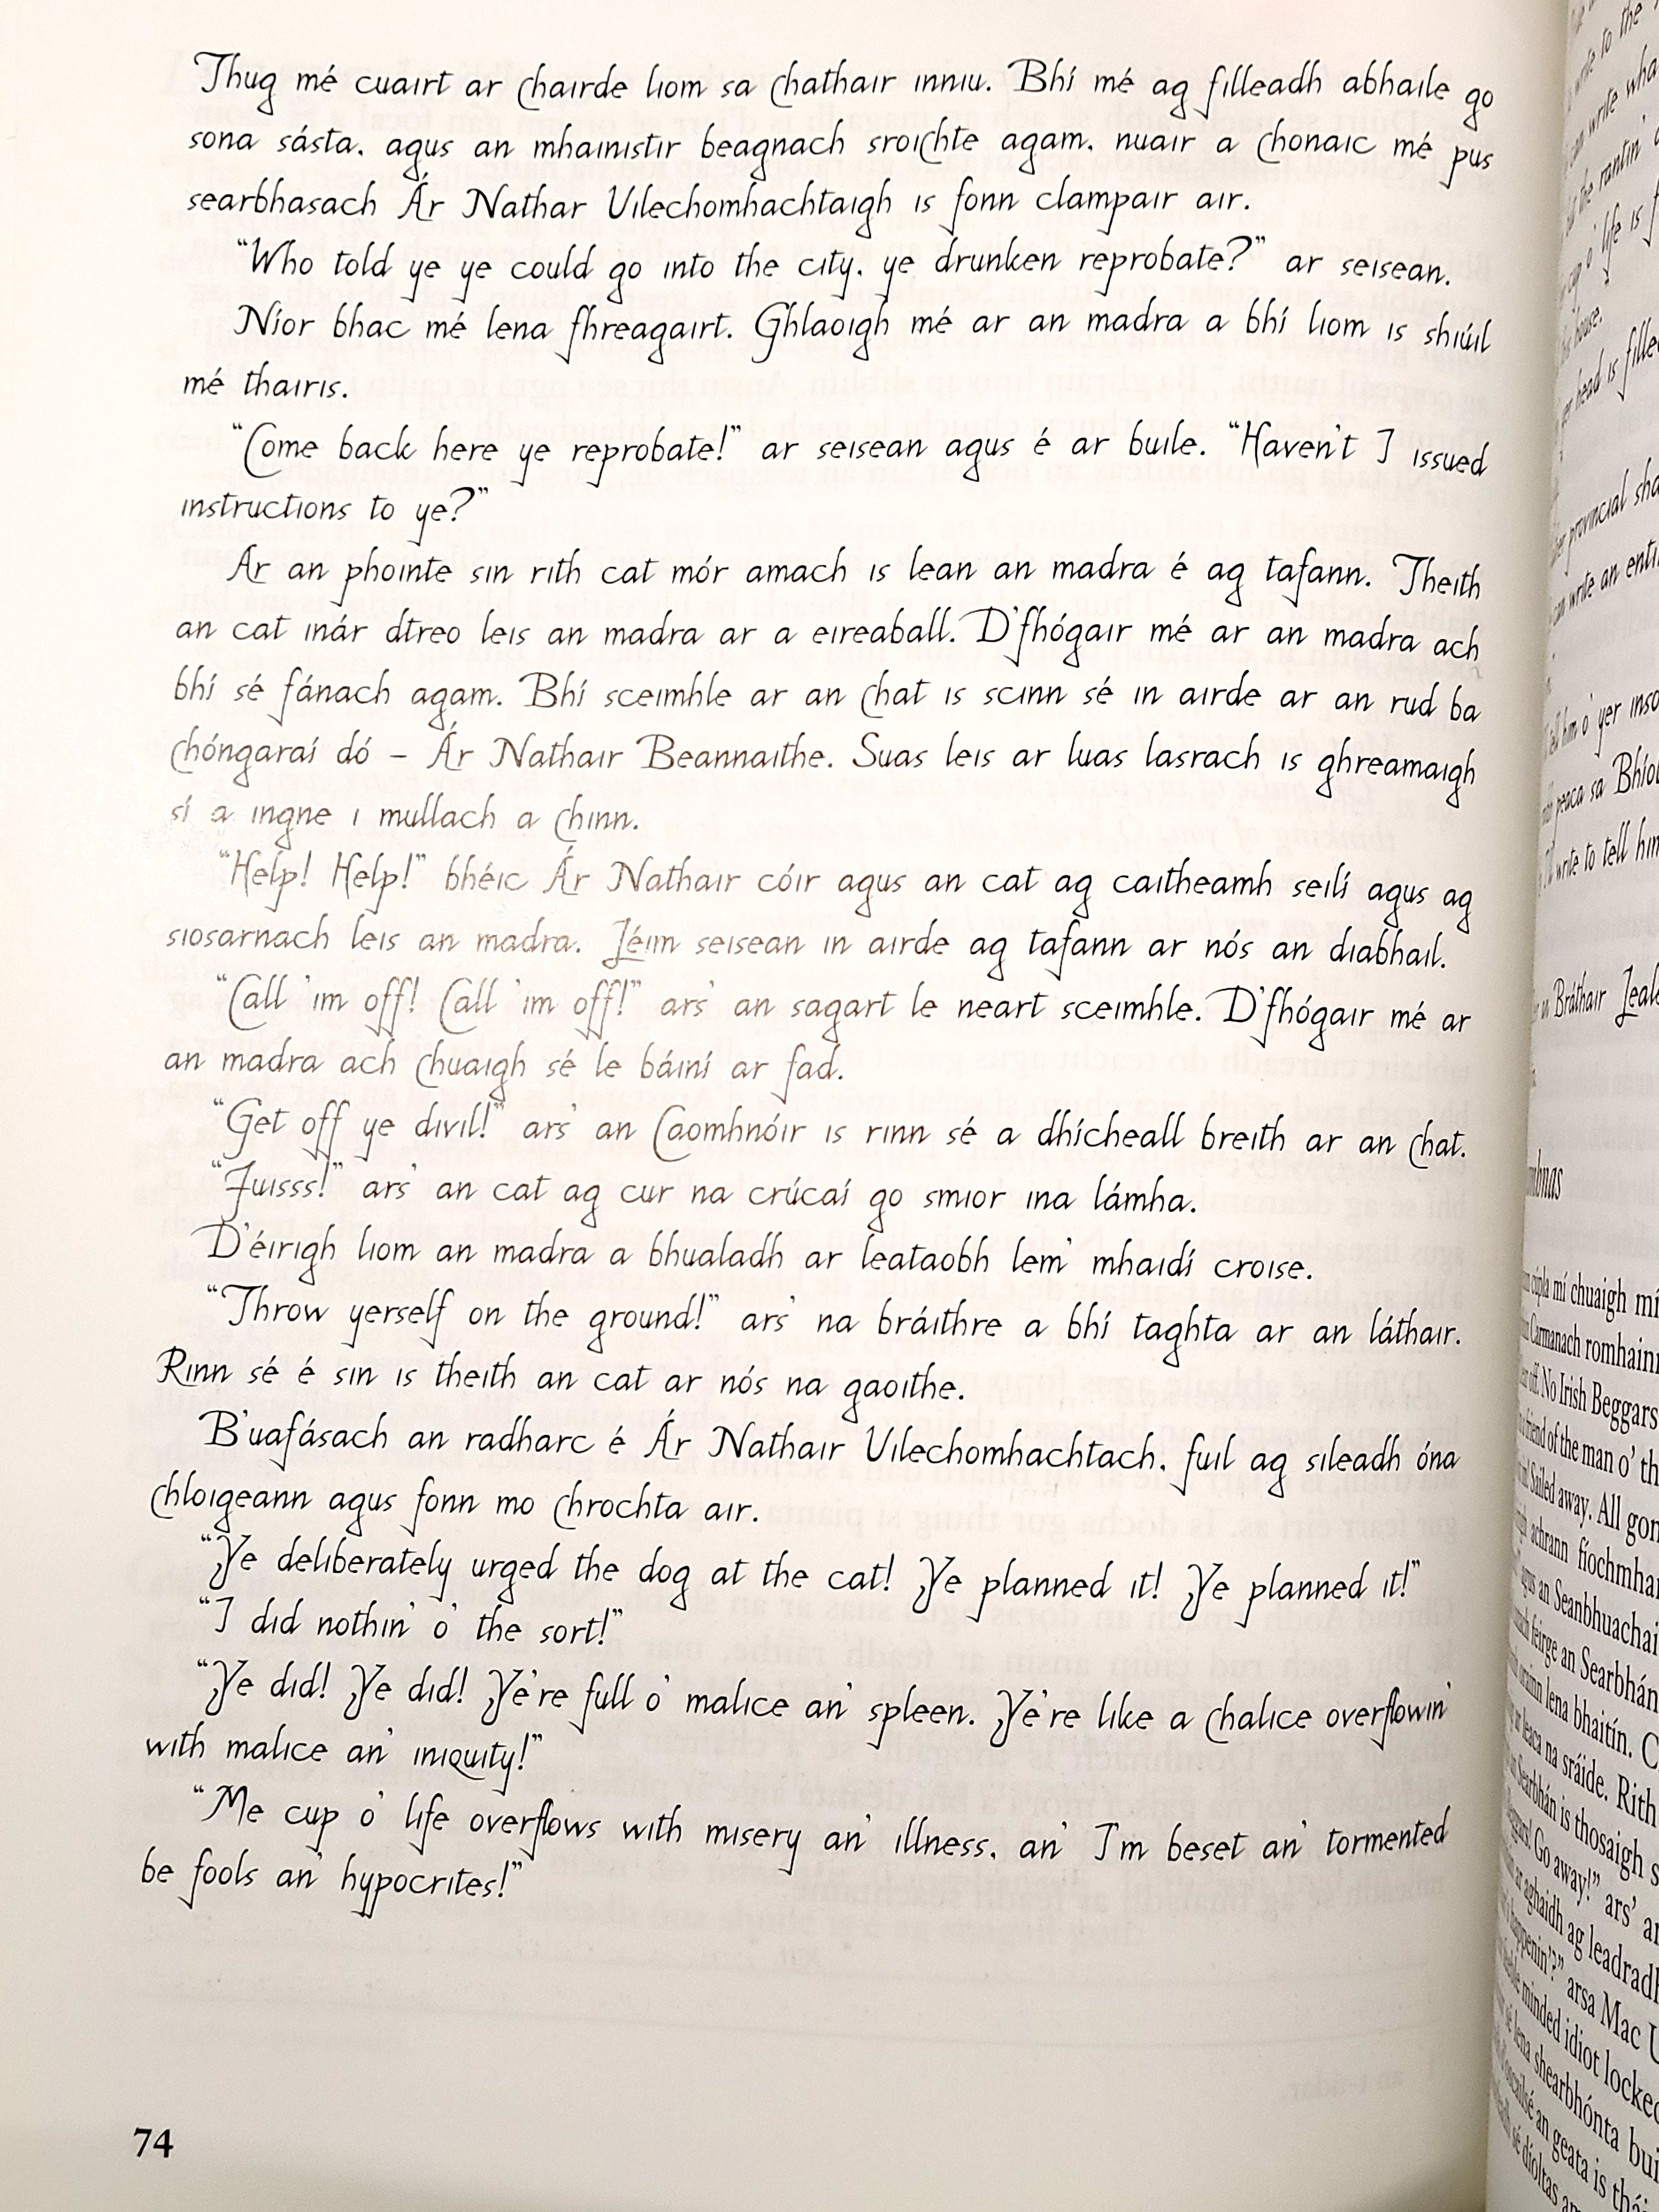 Thug mé cuairt ar chairde liom sa chathair inniu. Bhí mé ag filleadh abhaile go
sona sásta, agus an mhainistir beagnach sroichte agam, nuair a chonaic mé pus
searbhasach Ár Nathar Uilechomhachtaigh is fonn clampair air.
“Who told ye ye could go into the city, ye drunken reprobate?” ar seisean.
Níor bhac mé lena fhreagairt. Ghlaoigh mé ar an madra a bhí liom is shiúil
mé thairis.
“Come back here ye reprobate!” ar seisean agus é ar buile. “Haven't I issued
instructions to ye?”
Ar an phointe sin rith cat mór amach is lean an madra é ag tafann. Theith
an cat inár dtreo leis an madra ar a eireaball. D'fhógair mé ar an madra ach
bhí sé fánach agam. Bhí sceimhle ar an chat is scinn sé in airde ar an rud ba
chóngaraí dó – Ár Nathair Beannaithe. Suas leis ar luas lasrach is ghreamaigh
sí a ingne i mullach a chinn.
“Help! Help!” bhéic Ár Nathair cóir agus an cat ag caitheamh seilí agus ag
siosarnach leis an madra. Léim seisean in airde ag tafann ar nós an diabhail.
“Call 'im off! Call 'im off!” ars' an sagart le neart sceimhle. D'fhógair mé ar
an madra ach chuaigh sé le báiní ar fad.
“Get off ye divil!” ars' an Caomhnóir is rinn sé a dhícheall breith ar an chat.
“Fuisss!” ars' an cat ag cur na crúcaí go smior ina lámha.
D'éirigh liom an madra a bhualadh ar leataobh lem' mhaidí croise.
“Throw yerself on the ground!” ars' na bráithre a bhí taghta ar an láthair.
Rinn sé é sin is theith an cat ar nós na gaoithe.
B'uafásach an radharc é Ár Nathair Uilechomhachtach, fuil ag sileadh óna
chloigeann agus fonn mo chrochta air.
“Ye deliberately urged the dog at the cat! Ye planned it! Ye planned it!”
“I did nothin' o' the sort!”
“Ye did! Ye did! Ye're full o' malice an' spleen. Ye're like a chalice overflowin'
with malice an' iniquity!”
“Me cup o' life overflows with misery an' illness, an' I'm beset an' tormented
be fools an' hypocrites!”
74